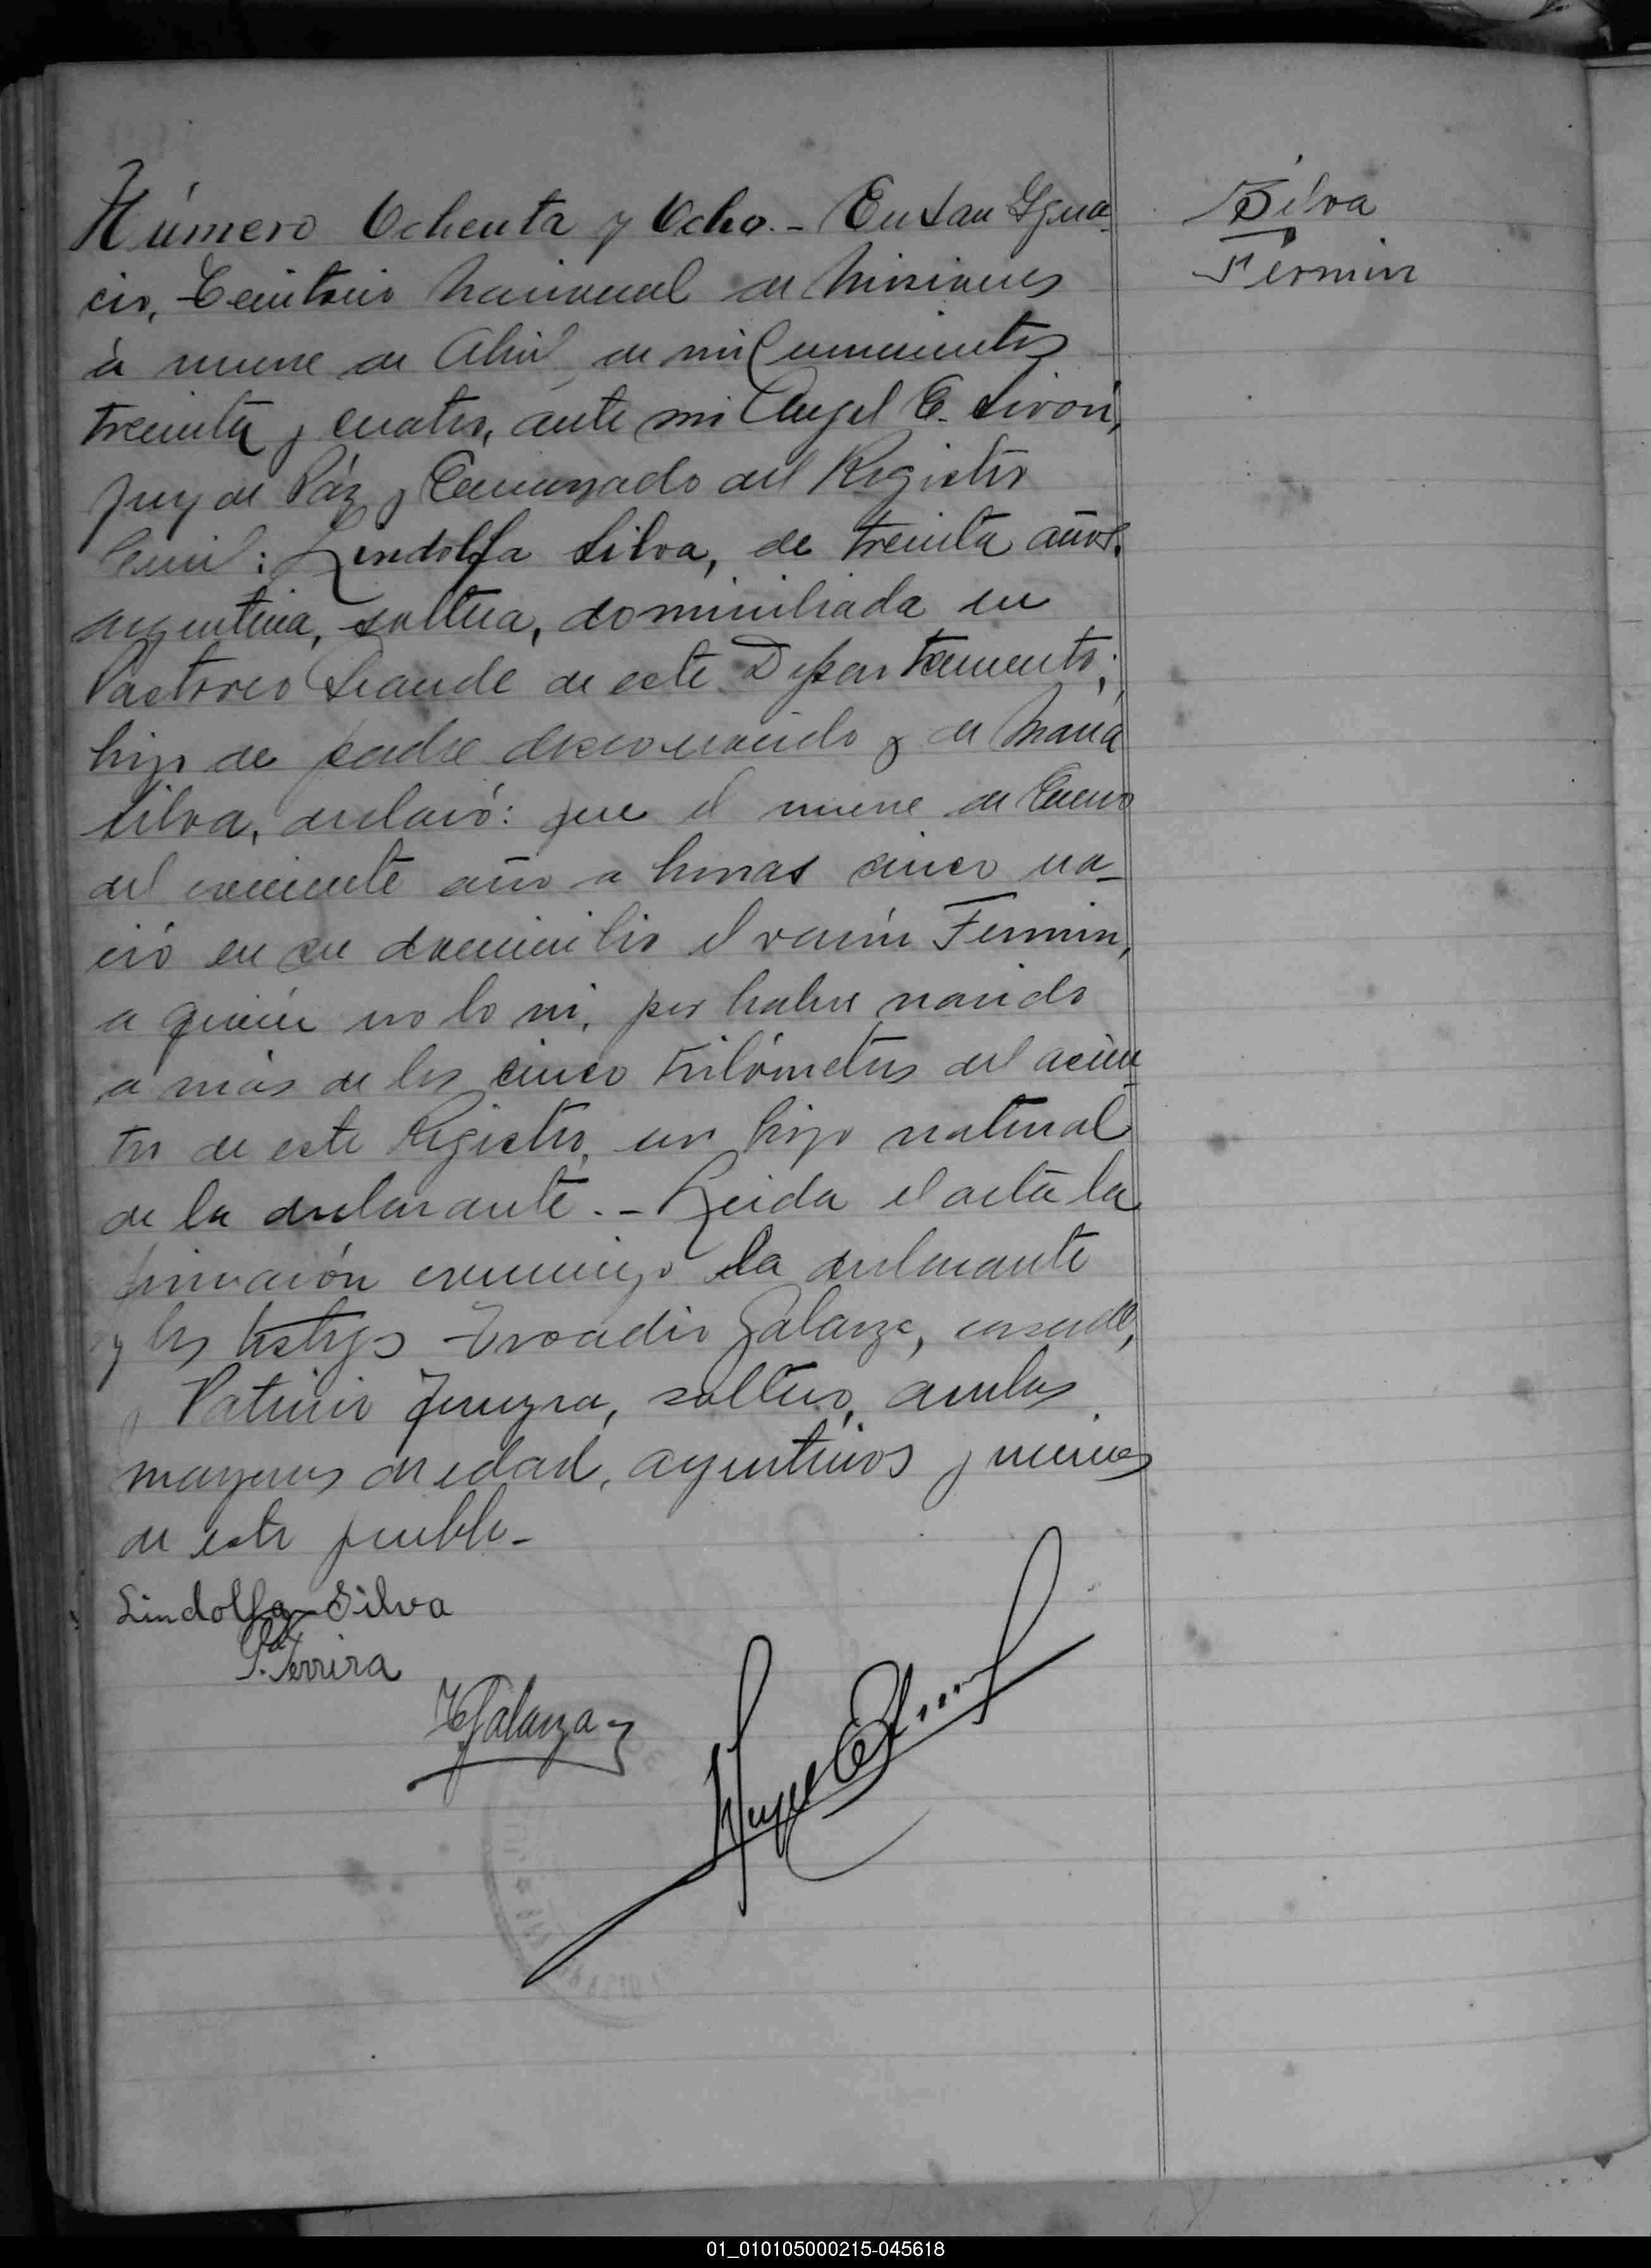 Número Ochenta y Ocho.- En San Igna
cio, Territorio Nacional de Misiones
à nueve de Abril de mil novecientos
treinta y cuatro, ante mi Angel E. Sironi,
Juez de Páz y Encargado del Registro
Civil: Lindolfa Silva, de treinta años,
argentina, soltera, dominiliada en
Pastoreo Grande de este Departamento;
hija de padre desconocido y de Maria
Silva, declaró: que el nueve de Enero
del corriente año a horas cinco na-
ció en su domicilio el varón Fermin,
a quien no lo vi, por haber nacido
a más de los cinco kilómetros del acien
to de este Registro, un hijo natural
de la declarante.- Leida el acta la
firmarón conmigo la declarante
y los testigos Troadio Galarza, casado,
y Patricio Ferreyra, soltero, ambos
mayores de edad, argentinos y vecinos
de este pueblo-
Silva
Fermin
Lindolfa Silva
P. Ferrira
T Galarza
Angel E. Sironi
01_010105000215-045618